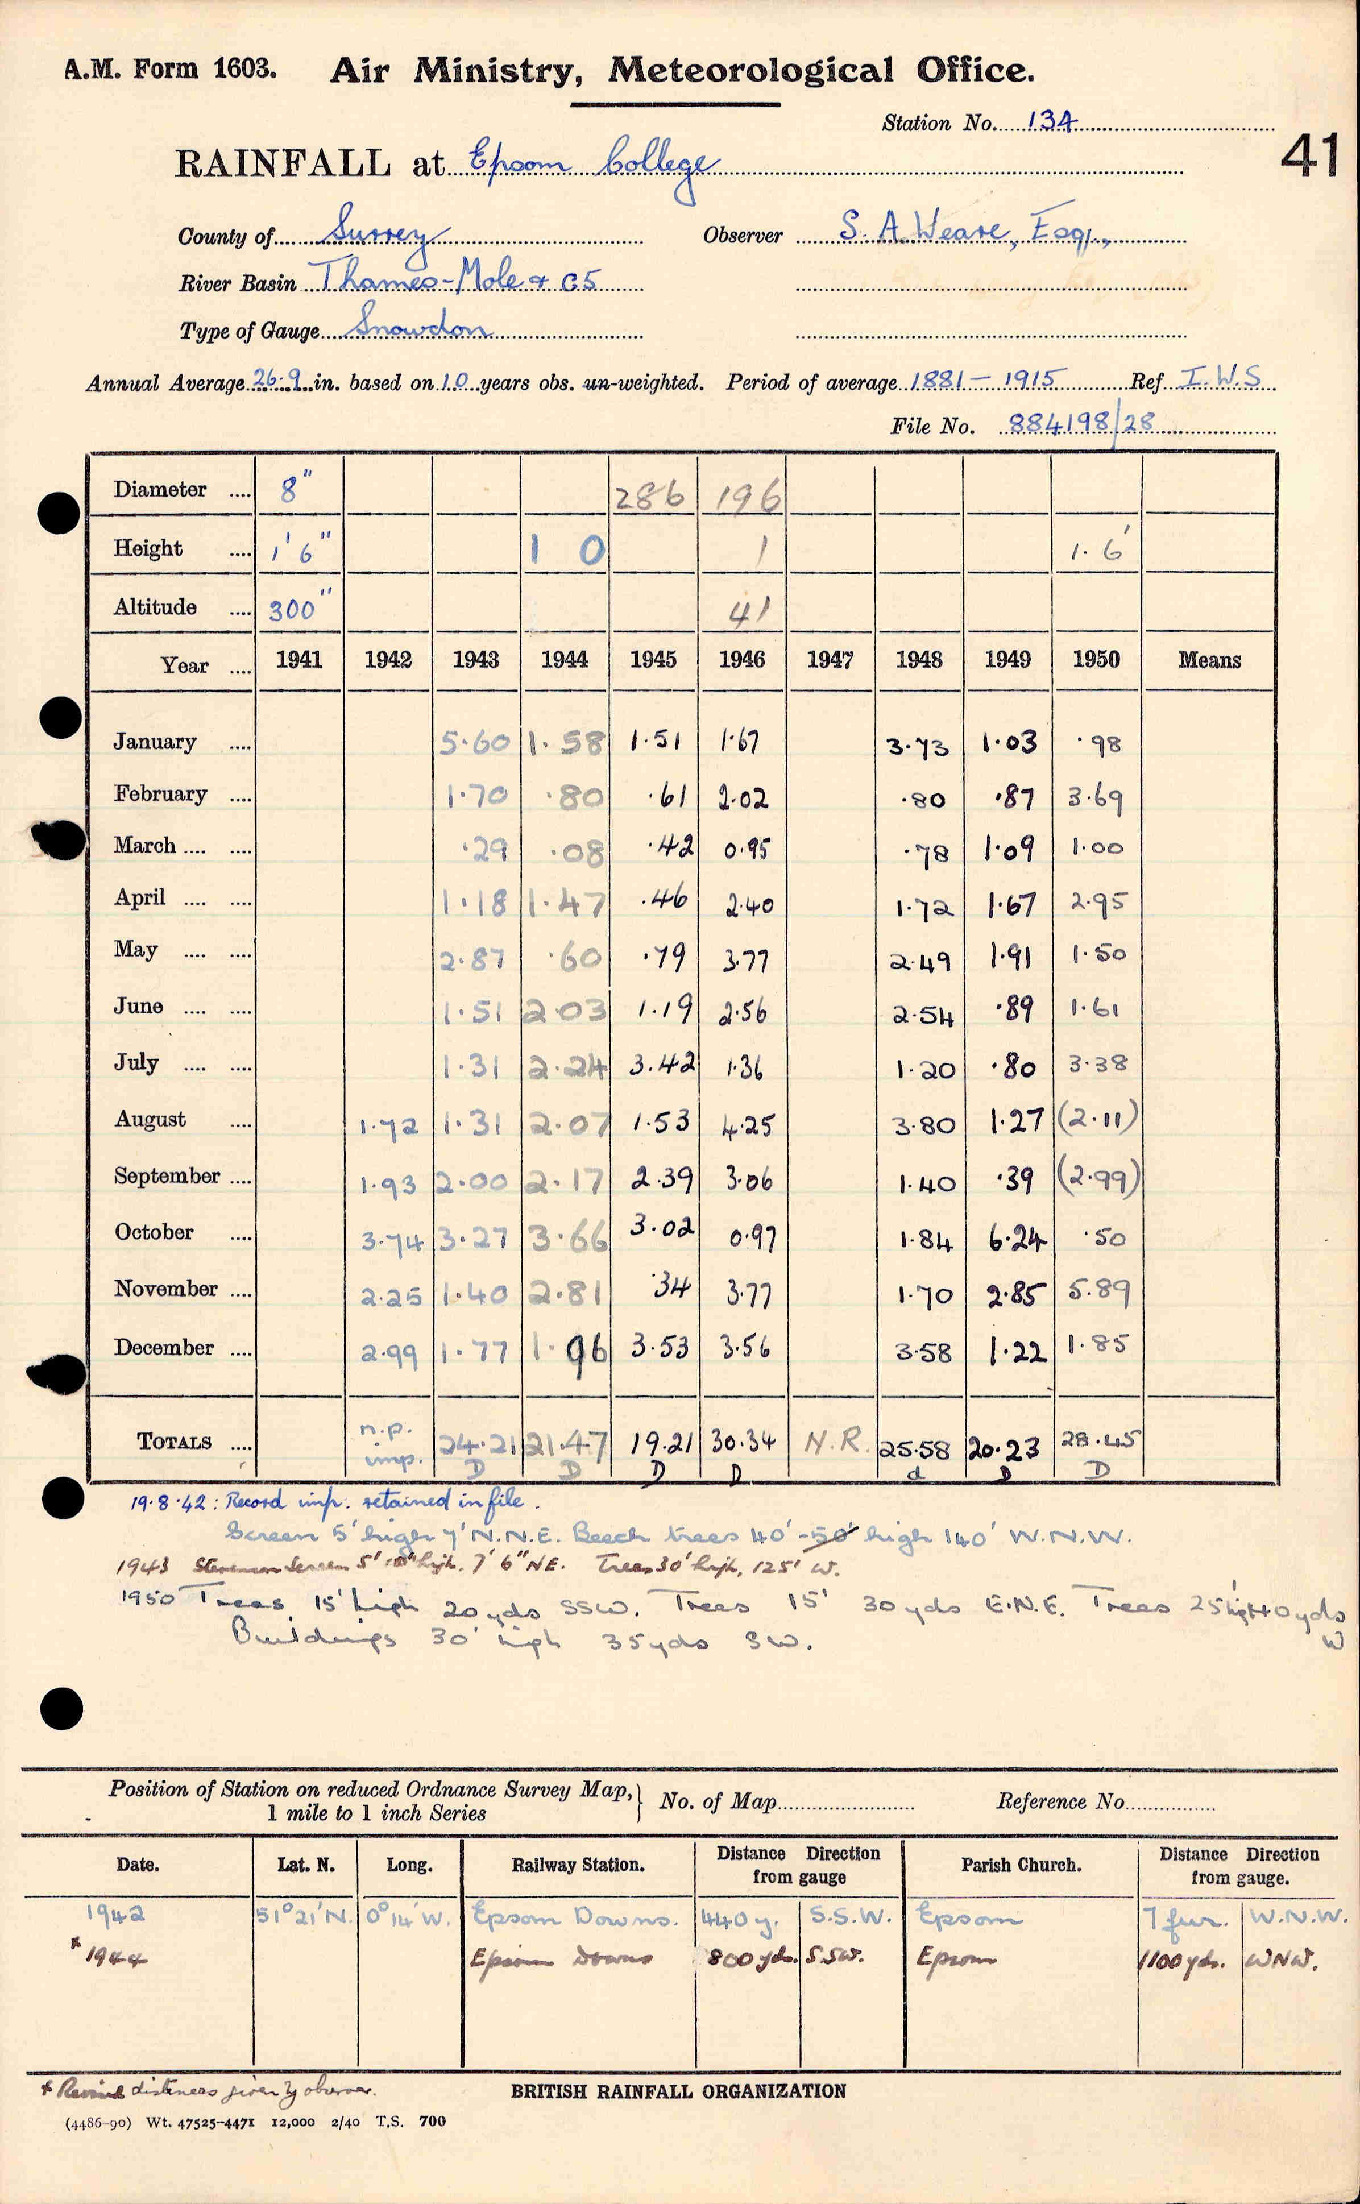 A.M. Form 1603. Air Ministry, Meteorological Office.
Station No. 134
41
RAINFALL at Epsom College
County of Surrey Observer S. A. Weare, Esq.,
River Basin Thames-Mole & C5
Type of Gauge Snowdon
Annual Average 26.9 in. based on 10 years obs. un-weighted. Period of average 1881 - 1915 Ref I.W.S
File No. 884198/28
Diameter .... 8" 286 196
Height .... 1' 6" 1 0 1 1.6'
Altitude .... 300" 41
Year .... 1941 1942 1943 1944 1945 1946 1947 1948 1949 1950 Means
January .... 5.60 1.58 1.51 1.67 3.73 1.03 .98
February .... 1.70 .80 .61 2.02 .80 .87 3.69
March .... .... .29 .08 .42 0.95 .78 1.09 1.00
April .... .... 1.18 1.47 .46 2.40 1.72 1.67 2.95
May .... .... 2.87 .60 .79 3.77 2.49 1.91 1.50
June .... .... 1.51 2.03 1.19 2.56 2.54 .89 1.61
July .... .... 1.31 2.24 3.42 1.36 1.20 .80 3.38
August .... 1.72 1.31 2.07 1.53 4.25 3.80 1.27 (2.11)
September .... 1.93 2.00 2.17 2.39 3.06 1.40 .39 (2.99)
October .... 3.74 3.27 3.66 3.02 0.97 1.84 6.24 .50
November .... 2.25 1.40 2.81 .34 3.77 1.70 2.85 5.89
December .... 2.99 1.77 1.96 3.53 3.56 3.58 1.22 1.85
TOTALS .... n.p. imp. 24.21 21.47 19.21 30.34 N.R. 25.58 20.23 28.45
D D D D d D D
19.8.42: Record imp. retained in file.
Screen 5' high 7' N.N.E. Beech trees 40'-50' high 140' W.N.W.
1943 Stevenson Screen 5' 10" high, 7' 6" NE. Trees 30' high, 125' W.
1950 Trees 15' high 20 yds SSW. Trees 15' 30 yds E.N.E. Trees 25' high 40 yds W
Buildings 30' high 35 yds SW.
Position of Station on reduced Ordnance Survey Map, 1 mile to 1 inch Series } No. of Map Reference No.
Date. Lat. N. Long. Railway Station. Distance Direction from gauge Parish Church. Distance Direction from gauge.
1942 51°21'N. 0°14'W. Epsom Downs. 440 y. S.S.W. Epsom 7 fur. W.N.W.
* 1944 Epsom Downs 800 yds. SSW. Epsom 1100 yds. WNW.
* Revised distances given by observer.
BRITISH RAINFALL ORGANIZATION
(4486-90) Wt. 47525-4471 12,000 2/40 T.S. 700